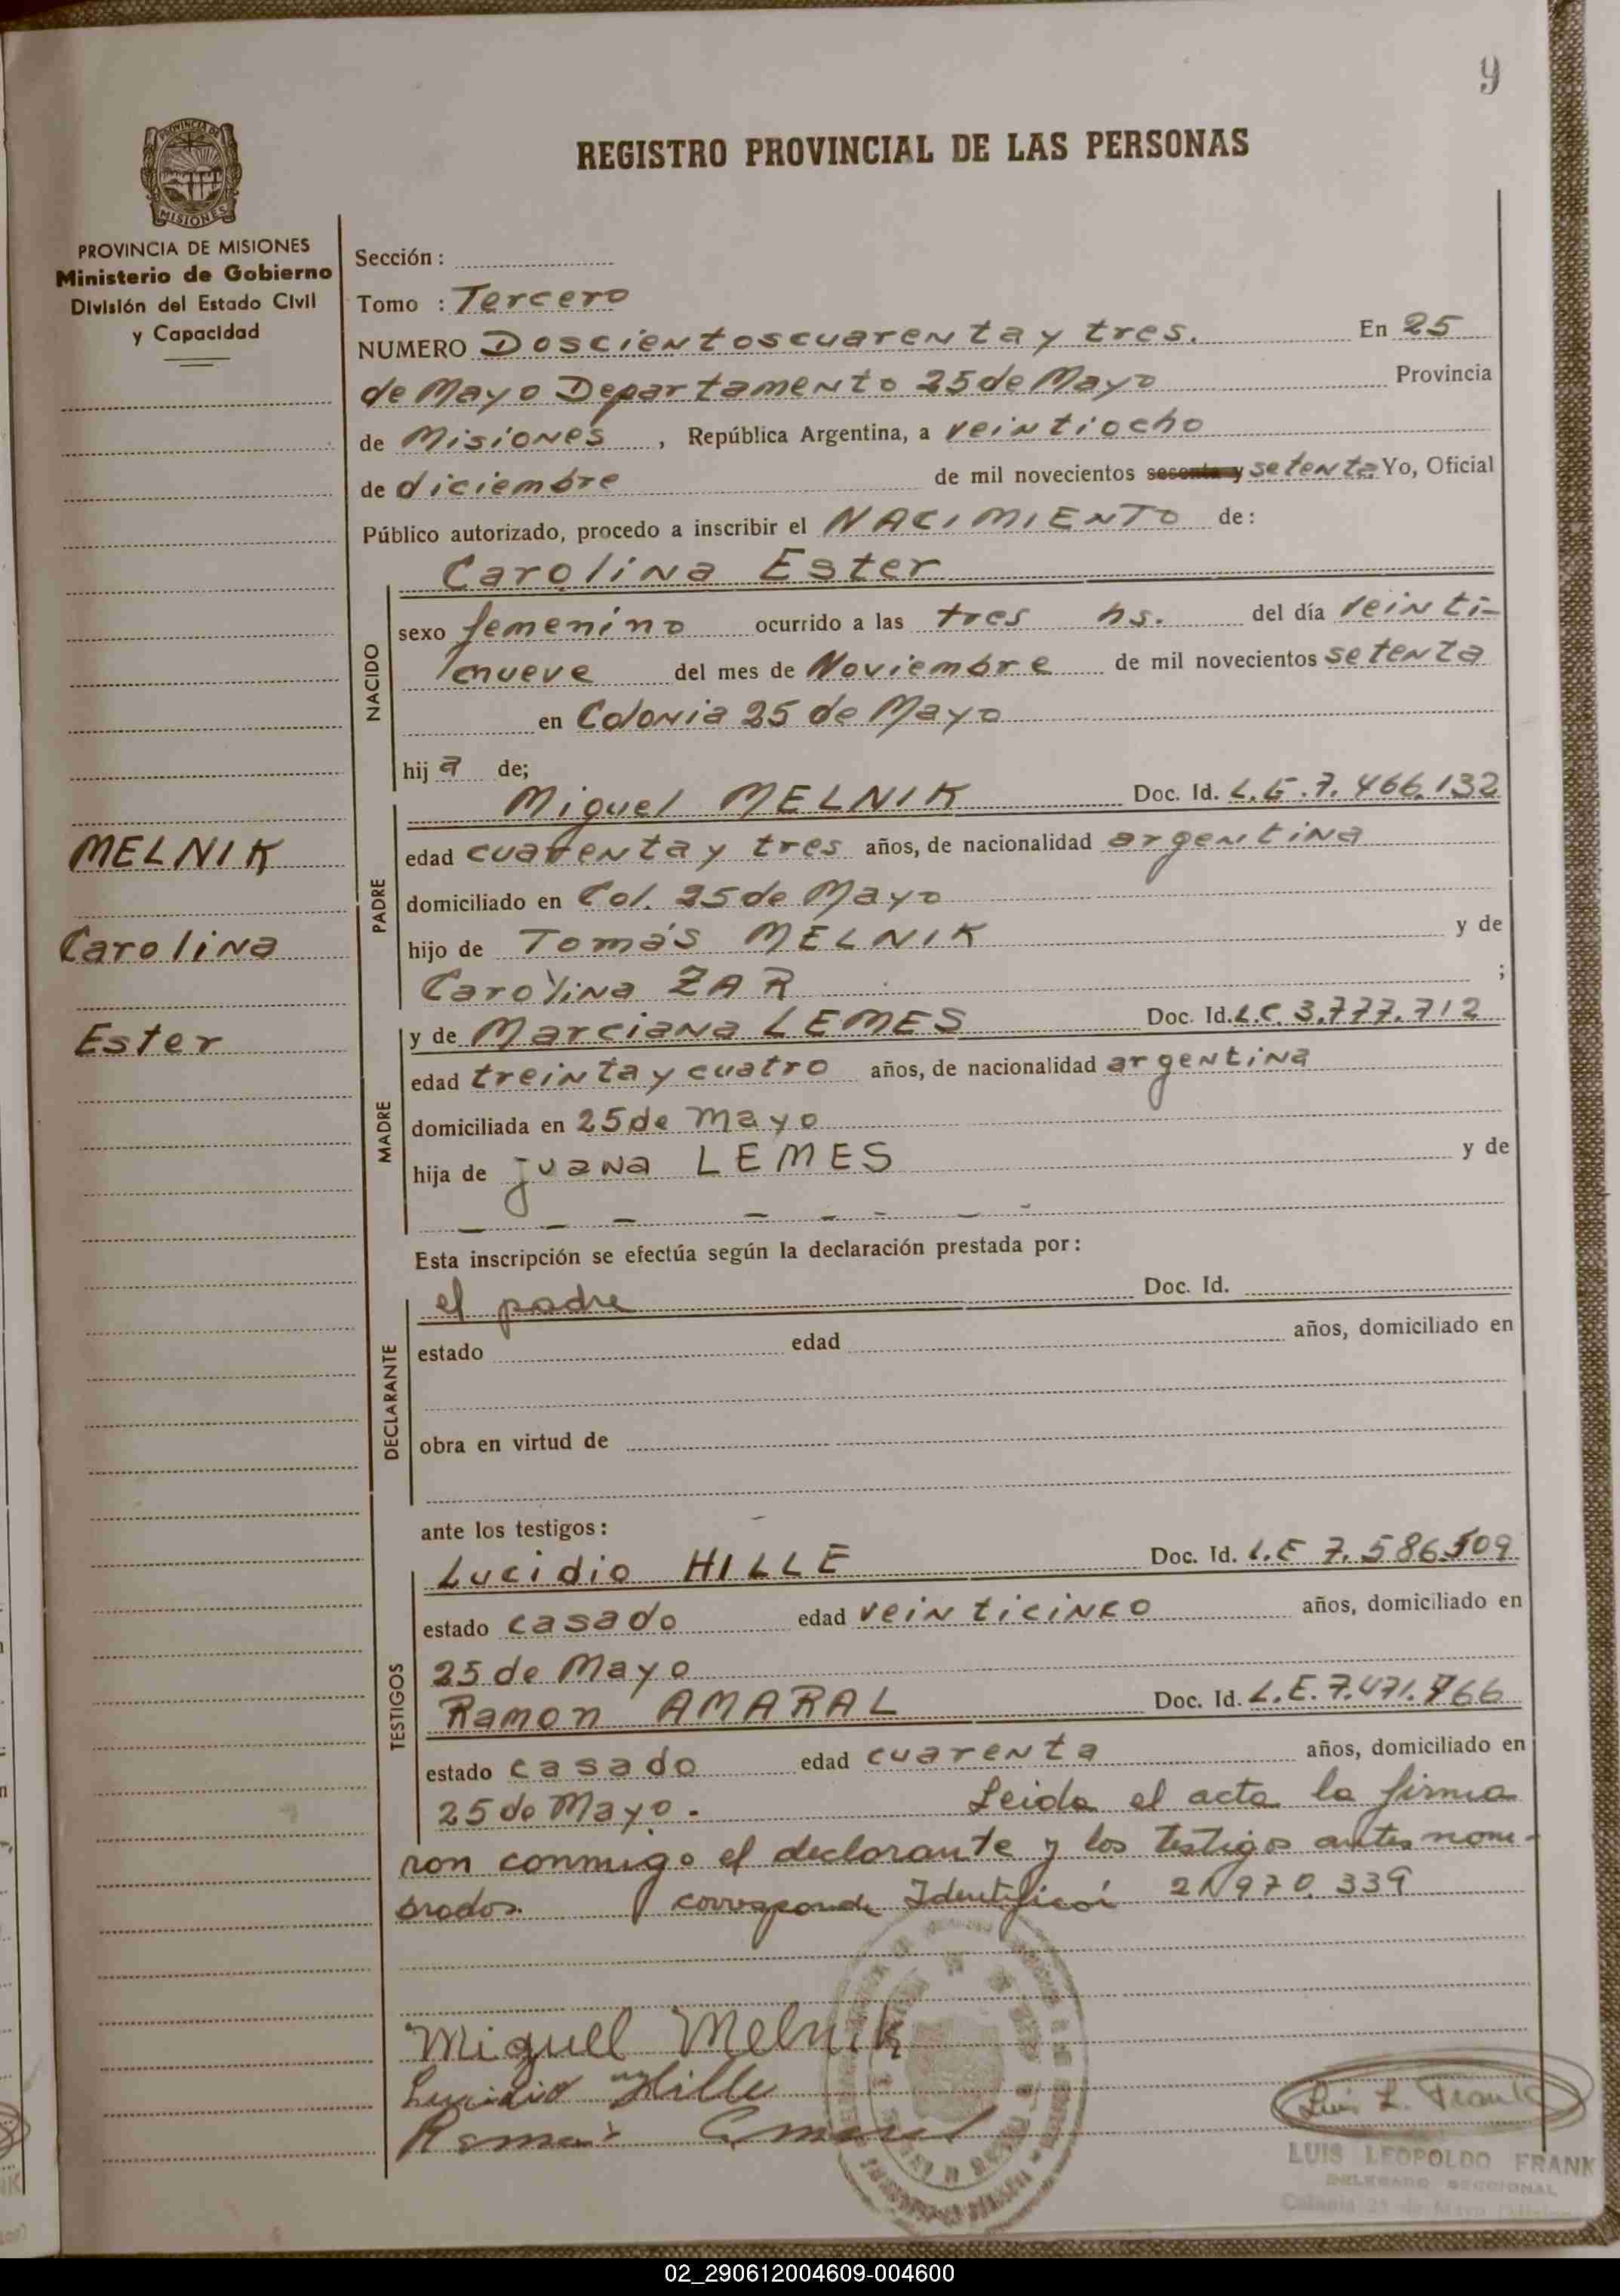 9
REGISTRO PROVINCIAL DE LAS PERSONAS
PROVINCIA DE MISIONES
PROVINCIA DE MISIONES
Ministerio de Gobierno
División del Estado Civil
y Capacidad
Sección :
Tomo : Tercero
NUMERO Doscientoscuarenta y tres. En 25
de Mayo Departamento 25 de Mayo Provincia
de Misiones , República Argentina, a veintiocho
de diciembre de mil novecientos sesenta y setenta Yo, Oficial
Público autorizado, procedo a inscribir el NACIMIENTO de:
Carolina Ester
NACIDO
sexo femenino ocurrido a las tres hs. del día veinti-
nueve del mes de Noviembre de mil novecientos setenta
en Colonia 25 de Mayo
hij a de;
Miguel MELNIK Doc. Id. L.E.7.466.132
MELNIK
Carolina
Ester
PADRE
edad cuarenta y tres años, de nacionalidad argentina
domiciliado en Col. 25 de Mayo
hijo de Tomás MELNIK y de
Carolina ZAR ;
y de Marciana LEMES Doc. Id. L.C. 3.777.712
MADRE
edad treinta y cuatro años, de nacionalidad argentina
domiciliada en 25 de Mayo
hija de juana LEMES y de
– – – – – – – –
Esta inscripción se efectúa según la declaración prestada por :
el padre Doc. Id.
DECLARANTE
estado edad años, domiciliado en
obra en virtud de
ante los testigos :
Lucidio HILLE Doc. Id. L.E 7.586.509
TESTIGOS
estado casado edad veinticinco años, domiciliado en
25 de Mayo
Ramon AMARAL Doc. Id. L.E.7.471.766
estado casado edad cuarenta años, domiciliado en
25 de Mayo. Leida el acta la firma
ron conmigo el declarante y los testigos antes nom-
brados. corresponde Identificaci 21 970.339
Miguel Melnik
Lucidio Hille
Ramon Amaral
Luis L. Frank
LUIS LEOPOLDO FRANK
DELEGADO SECCIONAL
Colonia 25 de Mayo
02_290612004609-004600